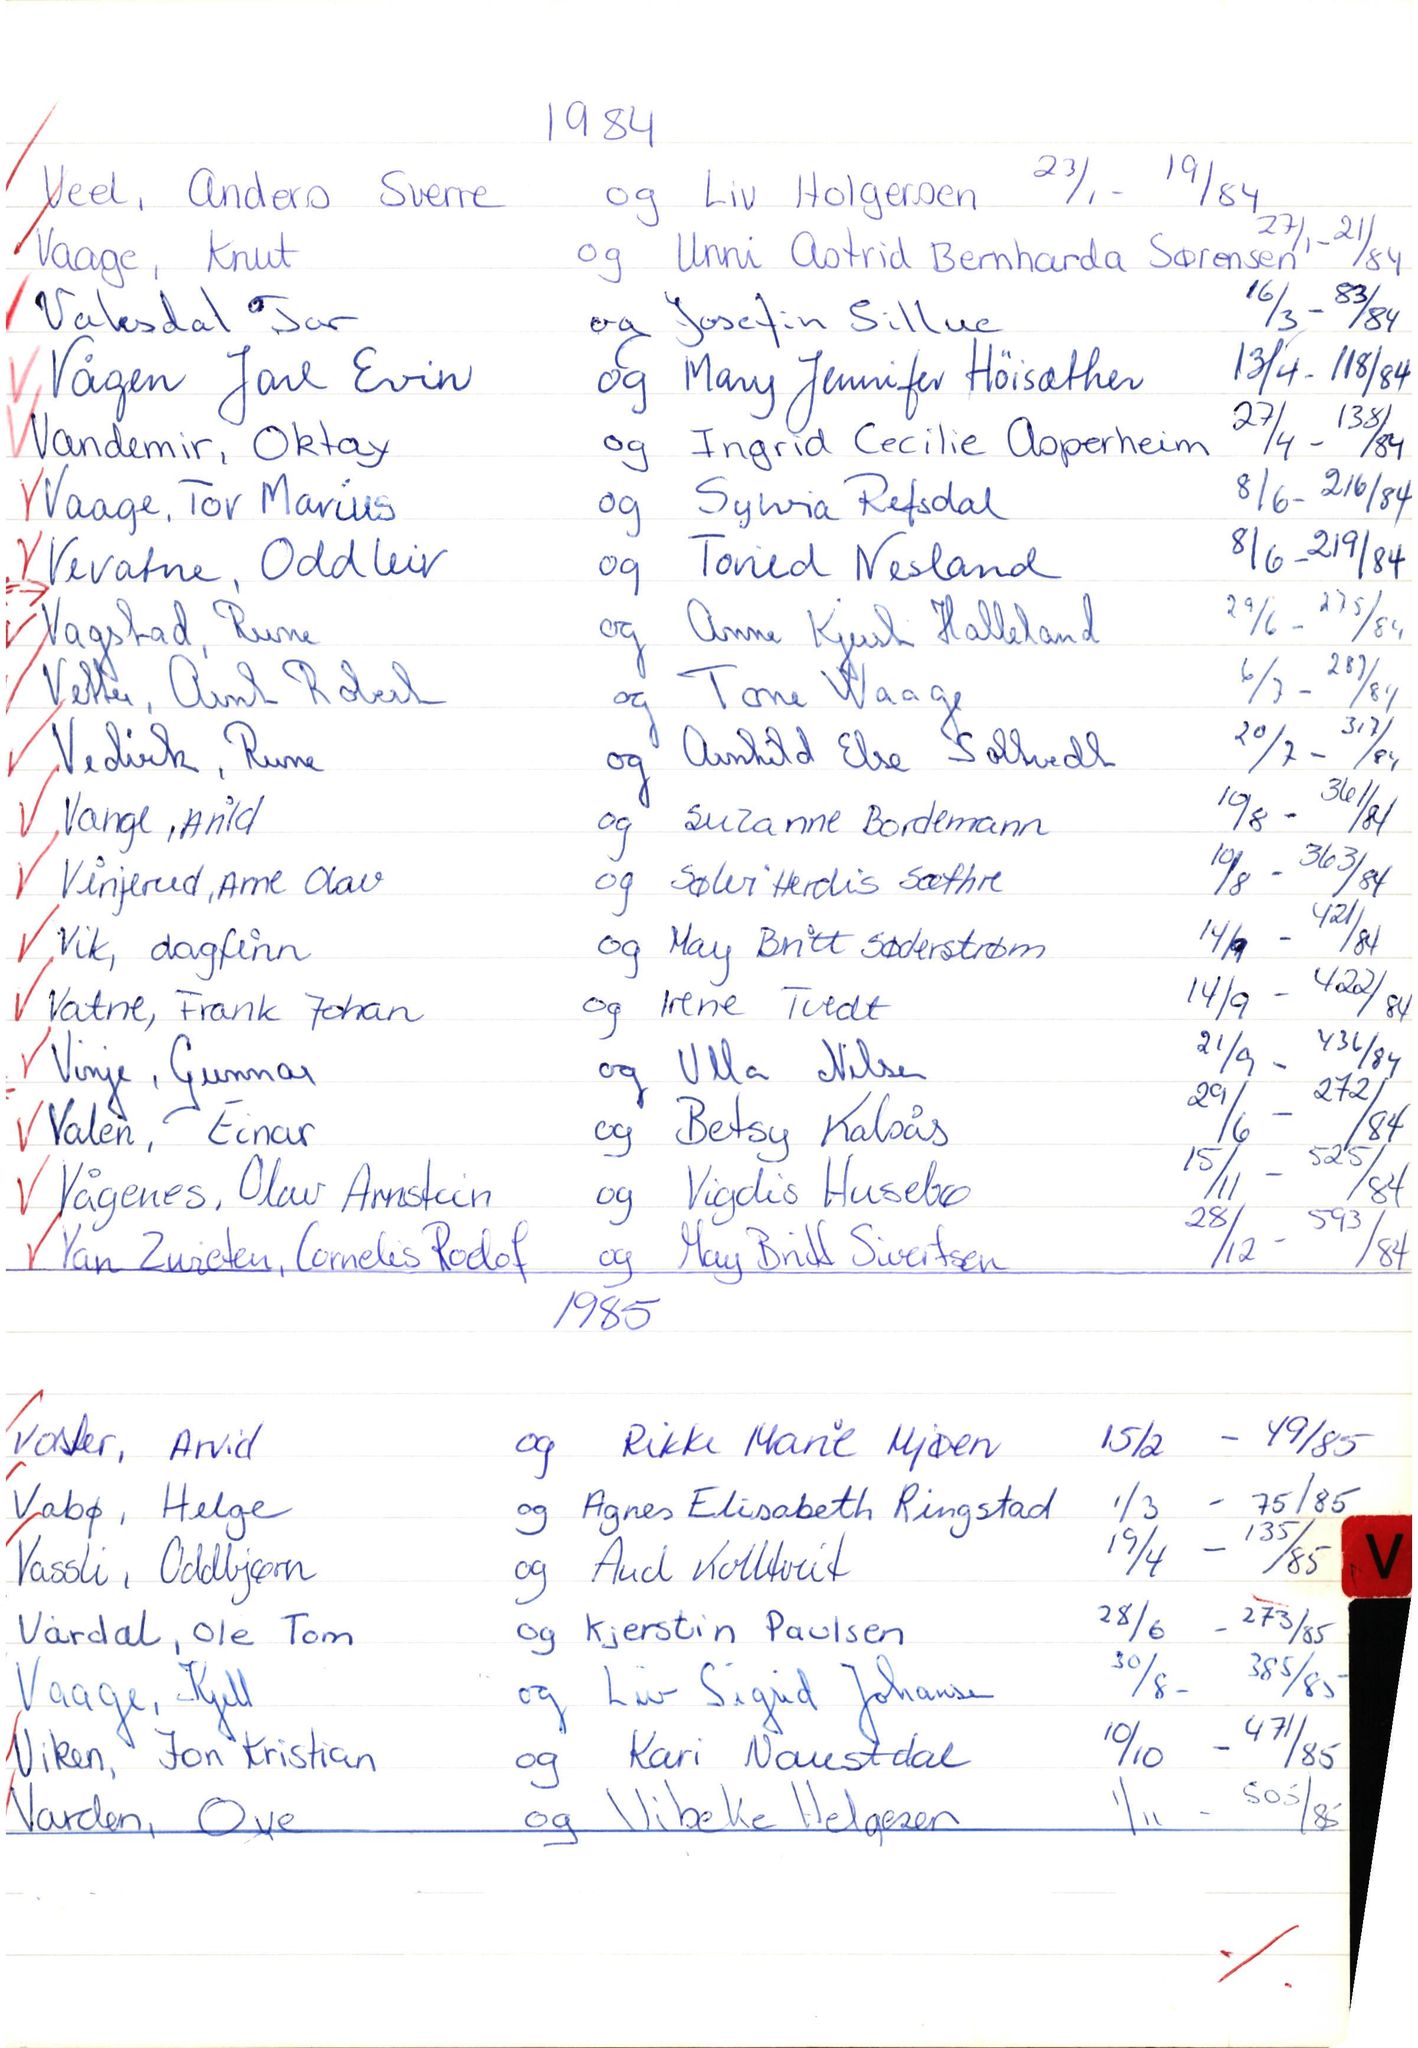 1984
Veel, Anders Sverre og Liv Holgersen 23/1 - 19/84
Vaage, Knut og Unni Astrid Bernharda Sørensen 27/1 - 21/84
Valesdal Tor og Josefin Silluc 16/3 - 83/84
Vågen Jarl Evin og Mary Jennifer Höisæther 13/4 - 118/84
Vandemir, Oktay og Ingrid Cecilie Asperheim 27/4 - 138/84
Vaage, Tor Marius og Sylvia Refsdal 8/6 - 216/84
Vevatne, Odd Leiv og Toril Nesland 8/6 - 219/84
Vagstad, Rune og Anne Kjersti Halleland 29/6 - 275/84
Vetter, Arnt Robert og Tone Waage 6/7 - 287/84
Vedvik, Rune og Arnhild Else Soltvedt 20/7 - 317/84
Vange, Arild og Suzanne Bordemann 10/8 - 361/84
Vinjerud, Arne Olav og Sølvi Herdis Sæthre 10/8 - 363/84
Vik, dagfinn og May Britt Søderstrøm 14/9 - 421/84
Vatne, Frank Johan og Irene Tvedt 14/9 - 422/84
Vinje, Gunnar og Ulla Nilsen 21/9 - 436/84
Valen, Einar og Betsy Kalsås 29/6 - 272/84
Vågenes, Olav Arnstein og Vigdis Husebø 15/11 - 525/84
Van Zwieten, Cornelis Rodof og May Britt Sivertsen 28/12 - 593/84
1985
Arvid og Rikke Marie Mjøen 15/2 - 49/85
Vabø, Helge og Agnes Elisabeth Ringstad 1/3 - 75/85
Vassli, Oddbjørn og Aud Kolltveit 19/4 - 135/85
V
Vårdal, Ole Tom og Kjerstin Paulsen 28/6 - 273/85
Vaage, Kjell og Liv Sigrid Johansen 30/8 - 385/85
Viken, Jon Kristian og Kari Naustdal 10/10 - 471/85
Varden, Ove og Vibeke Helgesen 1/11 - 505/85